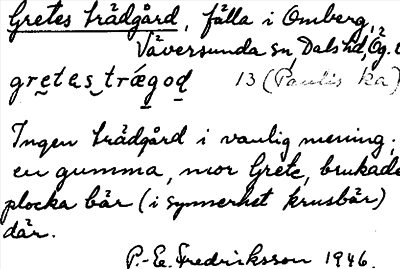 Gretes trädgård, fälla i Omberg,
Väversunda sn, Dals hd, Ög.
gretes trǽgoḍ 13 (Paulis ka)
Ingen trädgård i vanlig mening;
en gumma, mor Grete, brukade
plocka bär (i synnerhet krusbär)
där.
P.-E. Fredriksson 1946.